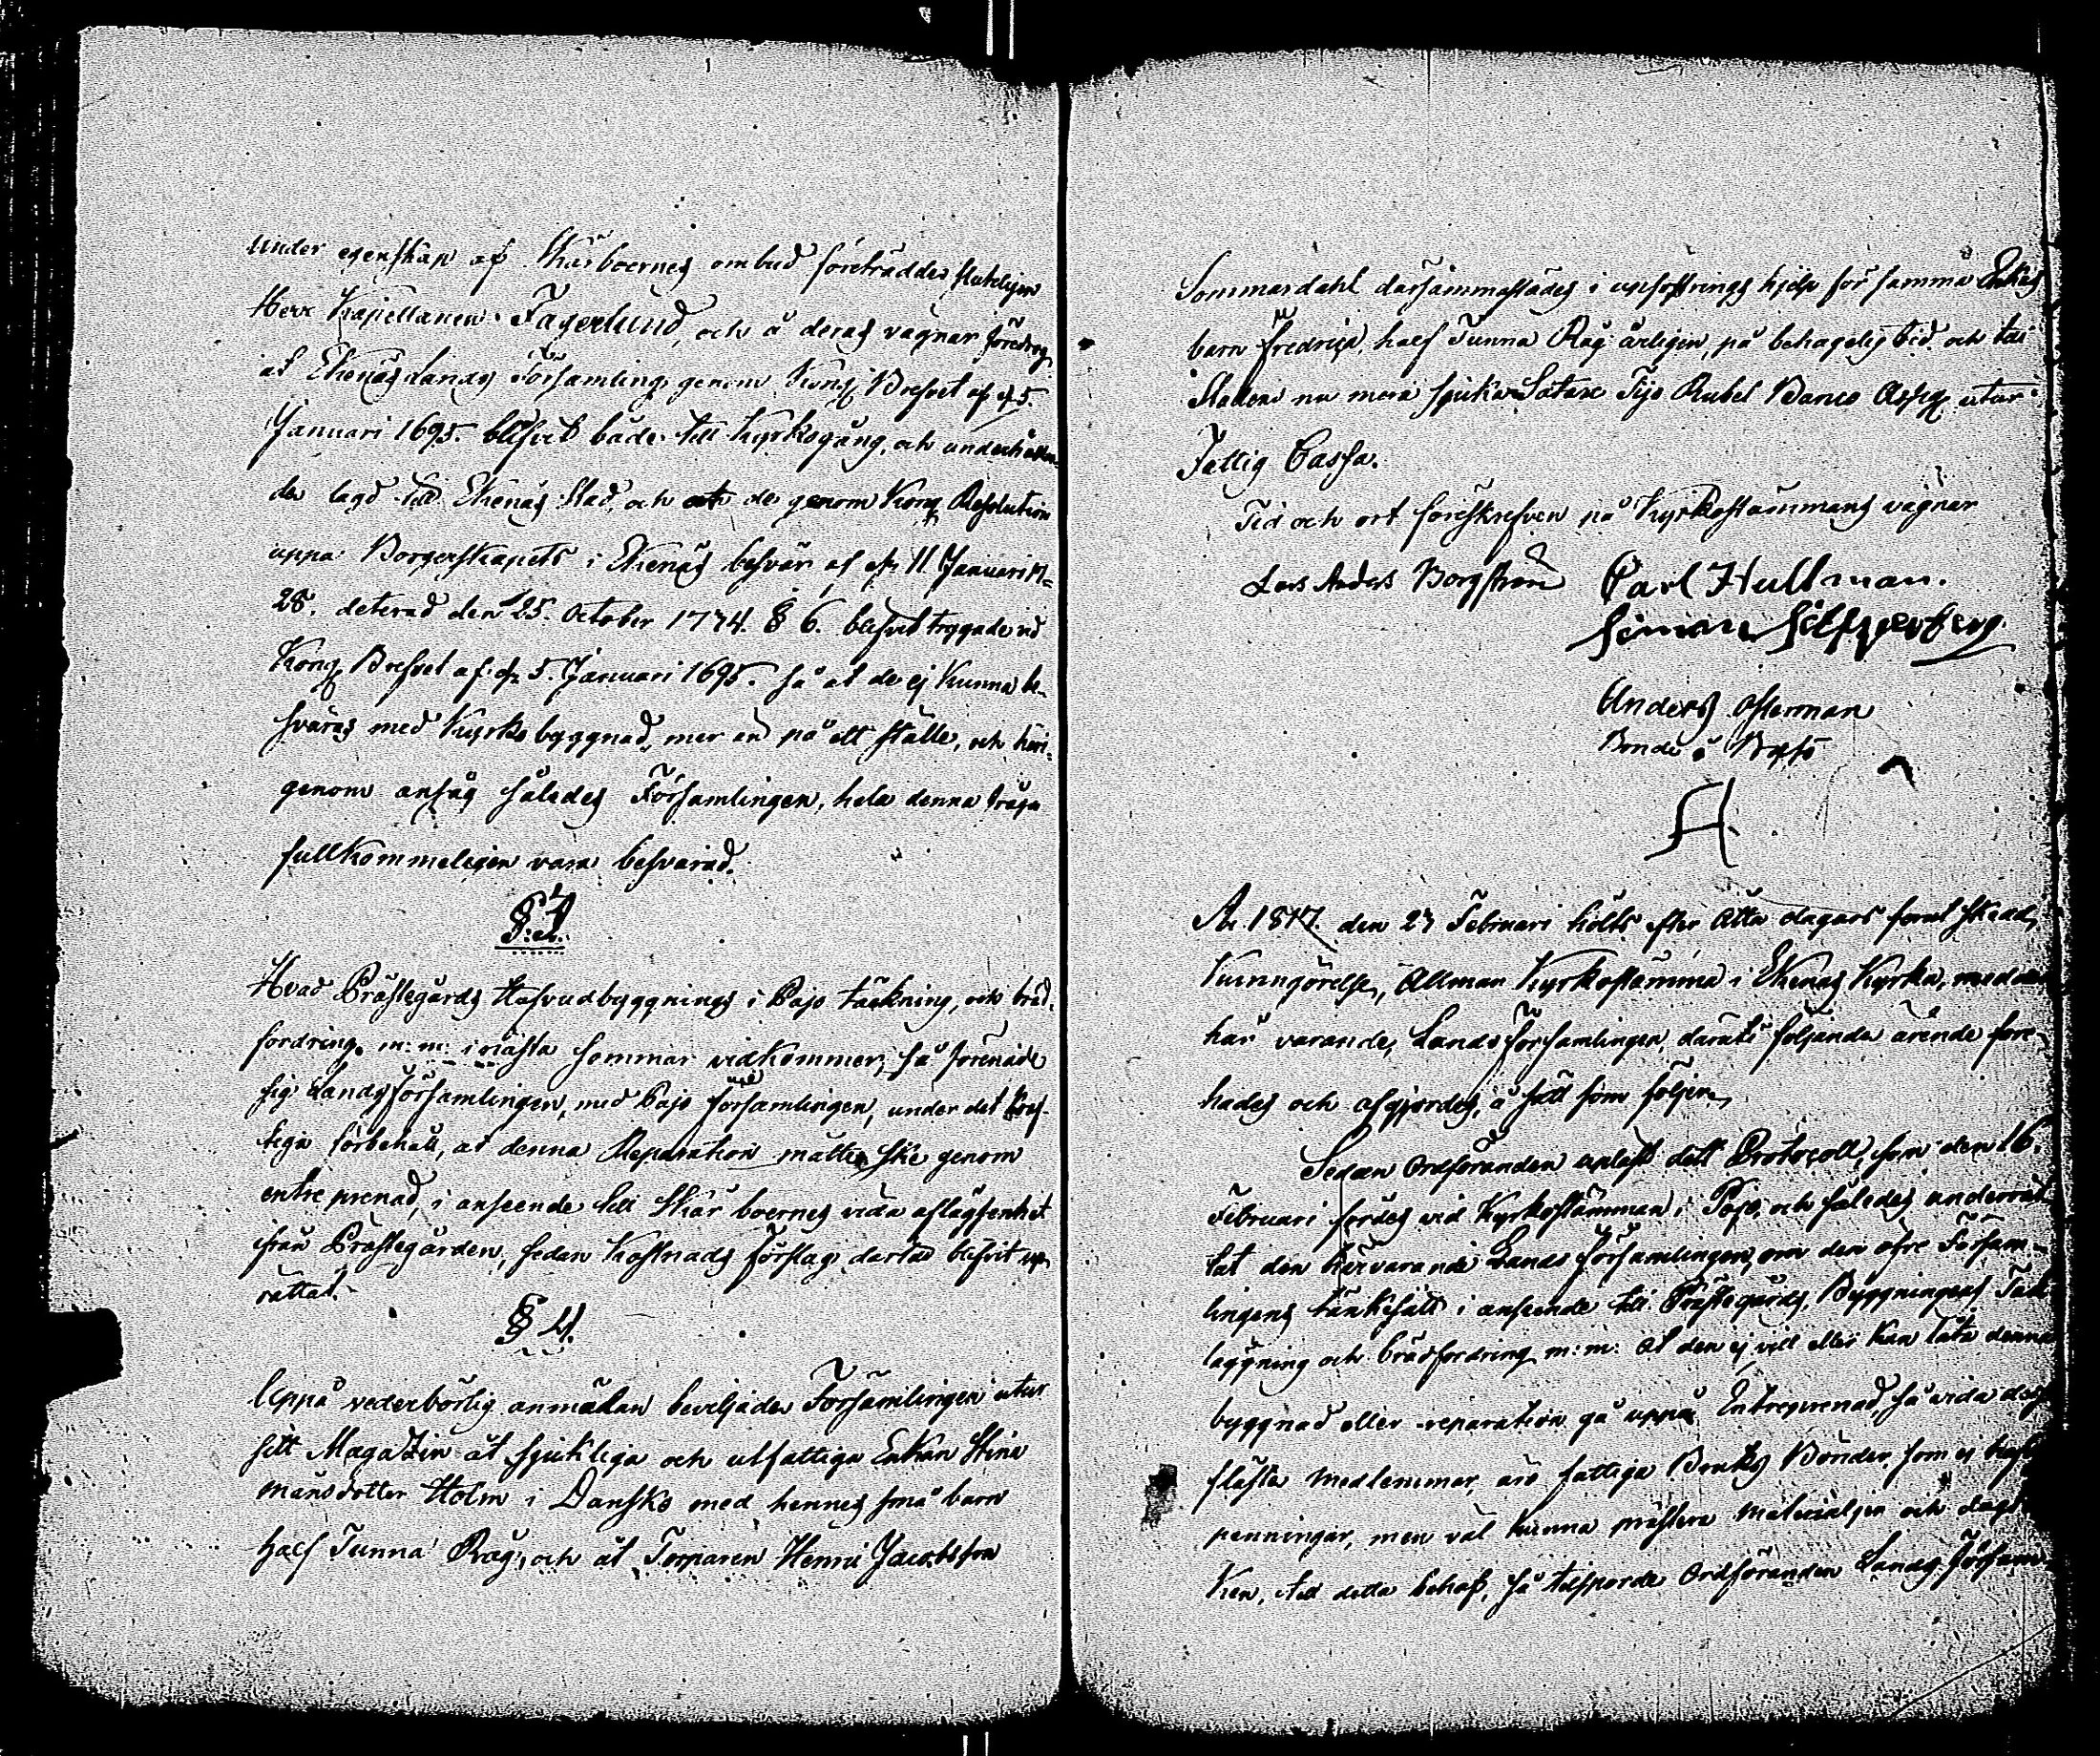 under egenskap af Skärboernes ombud företrädde slutligen
Herr Kapellanen Fagerlund, och å deras vägnar föredrog
at Ekenäs Lands Församling, genom Kongl Brefvet af d. 5.
Januari 1695. blifvit både till Kyrkogång, och underhållan-
de lagd till Ekenäs Stad, och at de genom Kong Resolution
uppå Borgerskapets i Ekenäs besvär, af d. 11 Januari 17-
28. daterad den 25. October 1774. § 6. blifvit tryggade vid
Kong Brefvet af d. 5. Januari 1695. så at de ej kunna be-
sväras med Kyrko byggnad, mer än på ett ställe, och häri-
genom ansåg således Församlingen, hela denna fråga
fullkommeligen vara besvarad.
§
Hvad Prästegårds Hufvudbyggnings i Pojo täckning, och bräd-
fordring m: m: i nästa sommar vidkommer, så förenade
sig Landsförsamlingen, med Pojo församlingen, under det
liga förbehåll, at denna Reparation måtte ske genom
entreprenad, i anseende till Skärboernes vida aflägsenhet
ifrån Prästegården, sedan Kostnads Förslag, därtill blifvit up-
rättat.
§ 4.
Uppå vederbörlig anmälan beviljade Församlingen utur
sitt Magazin åt sjukliga och utfattiga Enkan Stina
Månsdotter Holm i Dansko med hennes små barn
half Tunna Råg, och åt Torparen Henric Jacobsson
Sommardahl därsammastädes i upfostrings hjelp för samma Enkas
barn Fredrica, half Tunna Råg årligen, på behagelig tid och till
Stadens nu mera sjuka Tijo Rubel Banco Assig utur
Fattig Cassa.
Tid och ort föreskrefven på Kyrkostämmans vägnar
Lars Anders Borgström Carl Hullman.
Simon Silfverberg.
Anders Österman
Bonde i
A.
År 1817. den 23 Februari hölts efter Åtta dagars förut skedd
Kunngörelse, Allmän Kyrkostämma i Ekenäs Kyrka, med den
här varande, Landsförsamlingen, däräst följande ärende före-
hades och afgjordes, å sätt som följer.
Sedan Ordföranden upläst dett Protocoll, som den 16.
Februari fördes vid Kyrkostämman i Pojo, och således underrät-
tat den härvarande Landsförsamlingen, om den öfre Församm-
lingens tänkesätt i anseende till Prästegårds Byggningens Tak
läggning och brädfordring m: m: at den ej vill eller kan låta denna
byggnad eller reparation gå uppå Entreprenad, så vida dess
flästa medlemmar, äro fattiga Bruks Bönder, som ej hafva
penningar, men väl kunna prestera materialier och dags-
ken, till detta behof, så tilsporde Ordföranden Lands Församm-